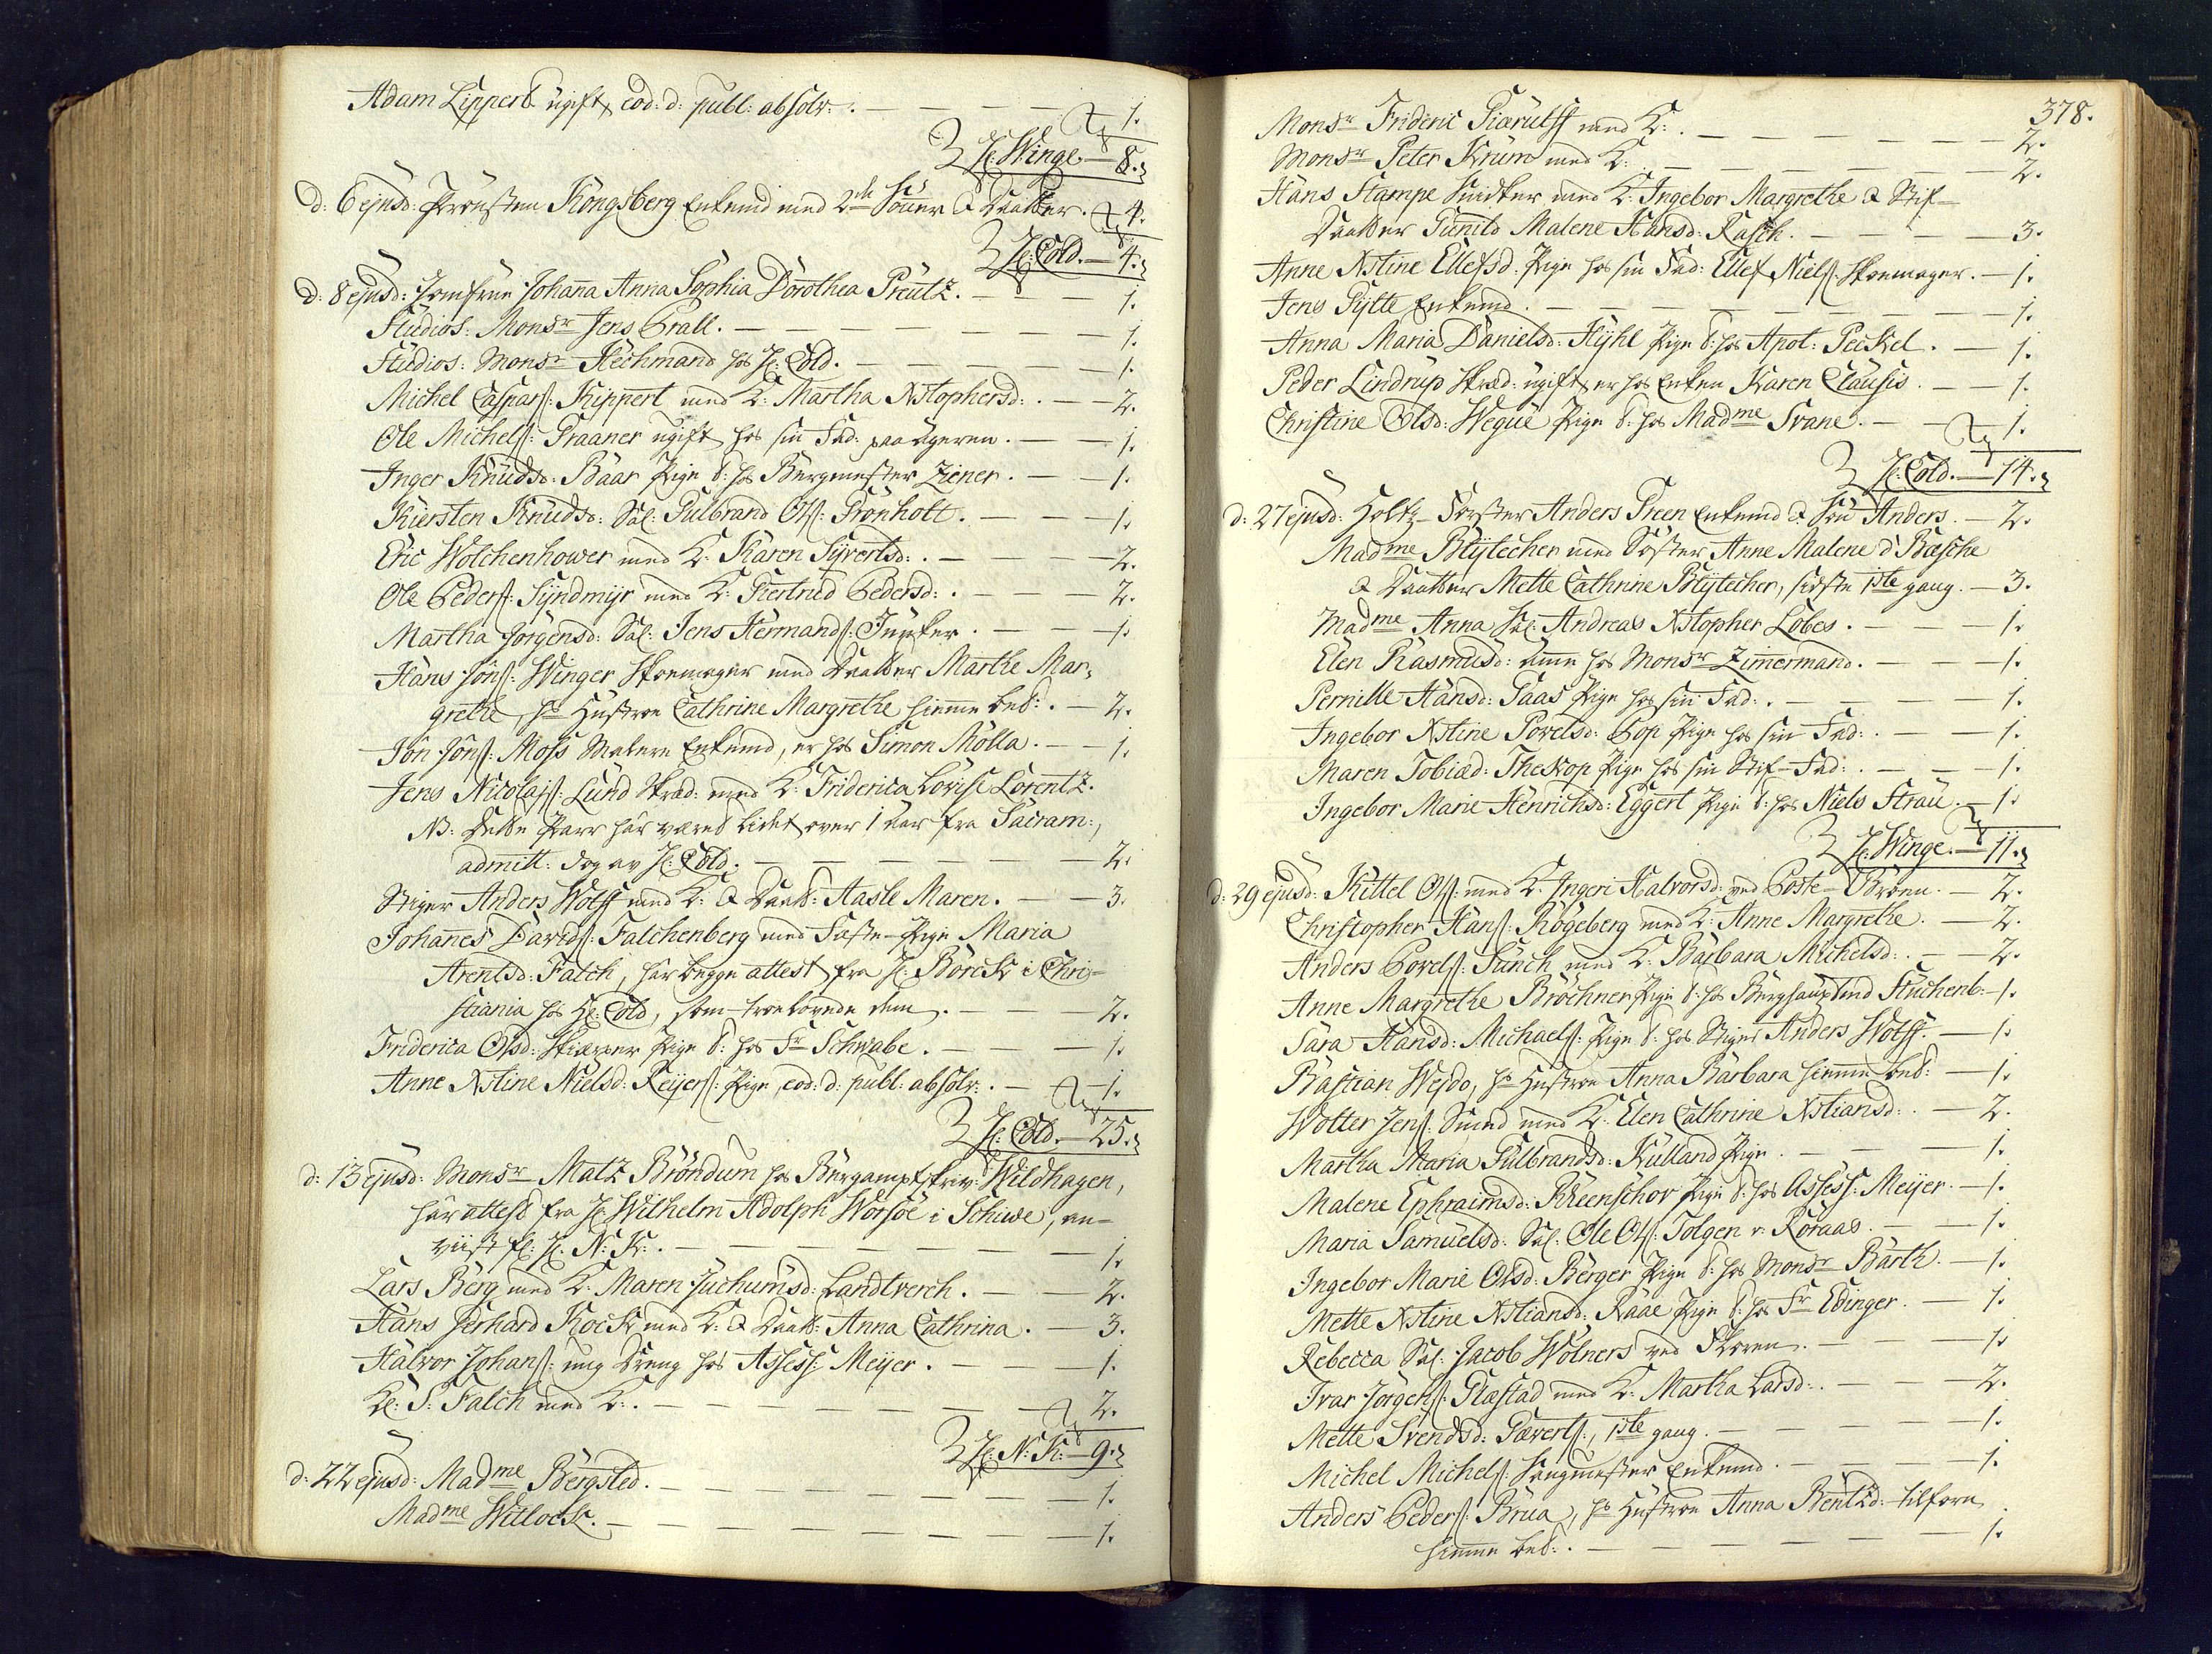 Adam Lippert ugift, eod: d: publ: absolv: . — 1.
H: Winge — 8.
d: 6 ejusd: Prousten Kongsberg Enkemd med 2de Sönner & Daatter. — 4.
H: Cold. — 4.
d: 8 ejusd: Jomfrue Johanna Anna Sophia Dorothea Preutz. — 1.
Studios: Monsr Jens Prall. — 1.
Studios: Monsr Hechmand hos H: Cold. — 1.
Michel Casparſ: Kippert med K: Martha Xstophersd: . — 2.
Ole Michelſ: Praaner ugift hos sin Fad: paa Ageren. — 1.
Inger Knudsd: Baar Pige t: hos Bergmester Ziener. — 1.
Kiersten Knudsd: Sal: Gulbrand Olſ: Grönholt. — 1.
Eric Wolchenhower med K: Karen Syvertsd: . — 2.
Ole Pederſ: Syndmyr med K: Giertrud Pedersd: . — 2.
Martha Jörgensd: Sal: Jens Hermandſ: Junker. — 1.
Hans Jönſ: Winger Skoemager med Daatter Marthe Mar-
grethe, hs Hustroe Cathrine Margrethe hiemme bet: . — 2.
Jön Jönſ: Moss Malere Enkemd, er hos Simon Mölla. — 1.
Jens Nicolajſ: Lund Skræd: med K: Friderica Lovise Lorentz.
NB: Dette Parr har været lidet over 1 Aar fra Sacram:,
admitt: dog av H: Cold. — 2.
Stiger Anders Wolff med K: & Daatt: Aasle Maren. — 3.
Johannes Davidſ: Falchenberg med Fæste-Pige Maria
Arentsd: Falch, har begge attest fra H: Börck i Chri-
stiania hos Hl: Cold, som troelovede dem. — 2.
Friderica Olsd: Skiærer Pige t: hos Fr Schwabe. — 1.
Anne Xstine Nielsd: Keyserſ: Pige, eod: d: publ: absolv: . — 1.
H: Cold. — 25.
d: 13 ejusd: Monsr Matz Bröndum hos Bergampt-skriv: Wildhagen,
har attest fra H: Wilhelm Adolph Worsöe i Schive, an-
viist H: N: K: . — 1.
Lars Berg med K: Maren Juchumsd: Landtverch. — 2.
Hans Gerhard Kock med K: & Daatt: Anna Cathrina. — 3.
Halvor Johanſ: ung Dreng hos Assess: Meyer. — 1.
Kl: S: Falch med K: . — 2.
H: N: K: — 9.
d: 22 ejusd: Madme Bergsted. — 1.
Madme Witlock. — 1.
378.
Monsr Frideric Giærulff med K: . — 2.
Monsr Peter Krum med K: . — 2.
Hans Stampe Snedker med K: Ingebor Margrethe & Stif-
Daatter Gunild Malene Hansd: Rasch. — 3.
Anne Xstine Ellefsd: Pige hos sin Fad: Ellef Nielſ: Skoemager. — 1.
Jens Gytte Enkemd. — 1.
Anna Maria Danielsd: Hyhl Pige t: hos Apot: Peckel. — 1.
Peder Lindrup Skræd: ugift, er hos Enken Karen Clausis. — 1.
Christine Olsd: Wegue Pige t: hos Madme Svane. — 1.
H: Cold. — 14.
d: 27 ejusd: Holtz-Forster Anders Green Enkemd & Sön Anders. — 2.
Madme Blytecher med Söster Anne Malene d Bæsche
& Daatter Mette Cathrine Blytecher, sidste 1ste gang. — 3.
Madme Anna Sal: Andreas Xstopher Löbes. — 1.
Elen Rasmusd: Amme hos Monsr Zimmermand. — 1.
Pernille Hansd: Gaas Pige hos sin Fad: . — 1.
Ingebor Xstine Povelsd: Pop Pige hos sin Fad: . — 1.
Maren Tobiæd: Theskop Pige hos sin Stif-Fad: . — 1.
Ingebor Marie Henrichsd: Eggert Pige t: hos Niels Strau. — 1.
H: Winge. — 11.
d: 29 ejusd: Kittel Olſ: med K: Ingeri Halvorsd: ved Poste-Broen. — 2.
Christopher Hanſ: Rögeberg med K: Anne Margrethe. — 2.
Anders Povelſ: Funch med K: Barbara Michelsd: . — 2.
Anne Margrethe Bröchner Pige t: hos Berghauptmd Stuckenb: — 1.
Sara Hansd: Michaelſ: Pige t: hos Stiger Anders Wolff. — 1.
Bastian Weydo, hs Hustroe Anna Barbara hiemme bet: — 1.
Wolter Jenſ: Smed med K: Elen Cathrine Xstiansd: . — 2.
Martha Maria Gulbrandsd: Kulland Pige. — 1.
Malene Ephraimsd: Kreenschor Pige t: hos Assess: Meyer. — 1.
Maria Samuelsd: Sal: Ole Olſ: Tolgen v: Roraas. — 1.
Ingebor Marie Olsd: Berger Pige t: hos Monsr Barth. — 1.
Mette Xstine Xstiansd: Raae Pige t: hos Fr Edinger. — 1.
Rebecca Sal: Jacob Wolners ved Skoven. — 1.
Ivar Jörgenſ: Flastad med K: Martha Larsd: . — 2.
Mette Svendsd: Gævertſ:, 1ste gang. — 1.
Michel Michelſ: Saugmester Enkemd. — 1.
Anders Pederſ: Brua, hs Hustroe Anna Bentzd: tilforn
hiemme bet: . — 1.